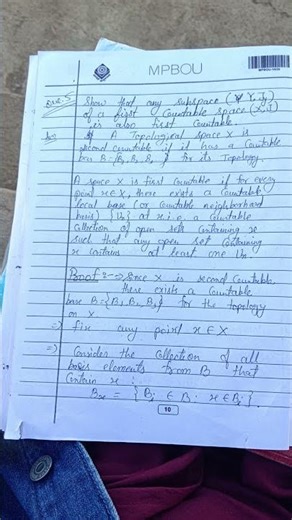 MPBOU
Que.5 Show that any subspace (Y, J
of a first countable space (X, J)
is also first Countable.
A Topological space X is
second countable if it has a Countable
base B={B1, B2, B3 } for its Topology.
A space X is first Countable if for every
point x∈X, there exists a Countable
local base (or Countable neighborhood
basis) {Un} at x i.e. a Countable
Collection of open sets Containing x
such that any open set Containing
x contains at least one Un.
Proof :-→ Since X is second Countable,
there exists a Countable
base B={B1, B2, B3} for the Topology
on X
⇒ fix any point x∈X
⇒ Consider the Collection of all
basis elements from B that
Contain x :
Bx = { Bi ∈ B : x ∈ Bi }.
10